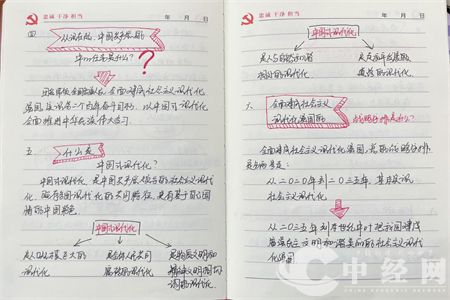 忠诚 干净 担当
年 月 日
四
从现在起，中国共产党的
中心任务是什么？
团结带领全国各族人民，全面建成社会主义现代化
强国、实现第二个百年奋斗目标，以中国式现代化
全面推进中华民族伟大复兴。
五
什么是
中国式现代化？
中国式现代化，是中国共产党领导的社会主义现代
化，既有各国现代化的共同特征，更有基于自己国
情的中国特色。
中国式现代化
是人口规模巨大的
现代化
是全体人民共同
富裕的现代化
是物质文明和
精神文明相协
调的现代化
忠诚 干净 担当
年 月 日
中国式现代化
是人与自然和谐
共生的现代化
是走和平发展
道路的现代化
六、
全面建成社会主义
现代化强国的
战略安排是什么？
全面建成社会主义现代化强国，总的战略安排
是分两步走：
从二〇二〇年到二〇三五年，基本实现
社会主义现代化
从二〇三五年到本世纪中叶把我国建成
富强民主文明和谐美丽的社会主义现代
化强国
中经网